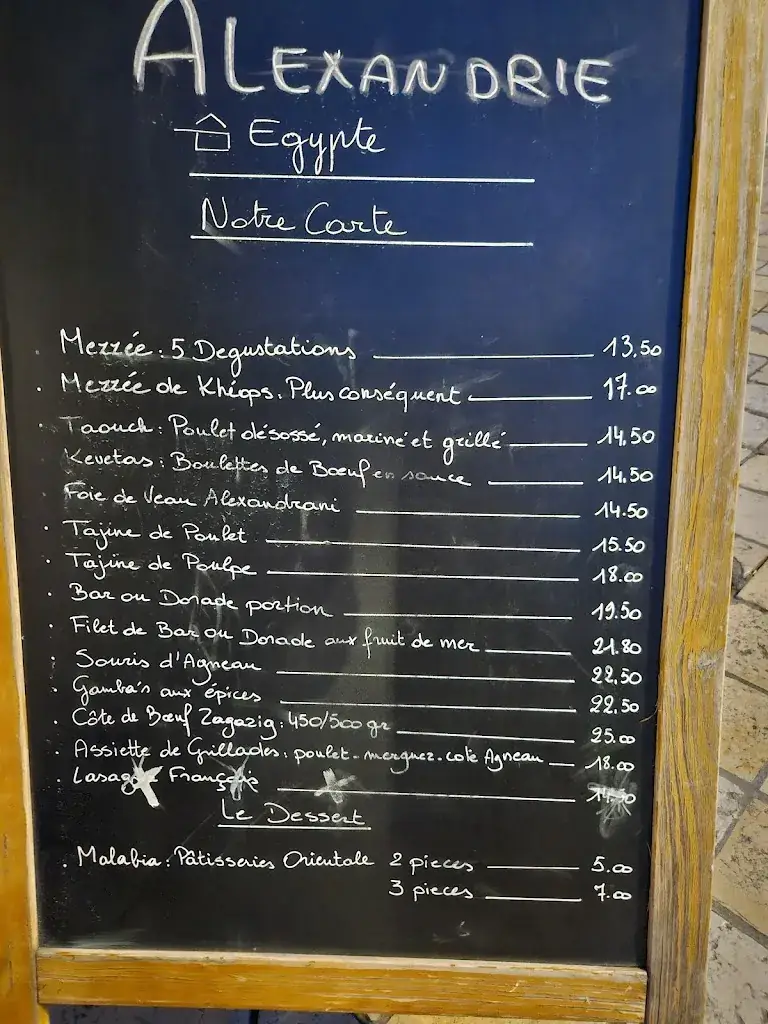 ALEXANDRIE
Egypte
Notre Carte
Mezzée : 5 Degustations 13.50
Mezzée de Khéops. Plus conséquent 17.00
Taouck : Poulet désossé, mariné et grillé 14.50
Kevetas : Boulettes de Bœuf en sauce 14.50
Foie de Veau Alexandrani 14.50
Tajine de Poulet 15.50
Tajine de Poulpe 18.00
Bar ou Dorade portion 19.50
Filet de Bar ou Dorade aux fruit de mer 21.80
Souris d'Agneau 22.50
Gamba's aux épices 22.50
Côte de Bœuf Zagazig : 450/500 gr 25.00
Assiette de Grillades : poulet - merguez - cote Agneau 18.00
Le Dessert
Malabia : Pâtisseries Orientale 2 pieces 5.00
3 pieces 7.00